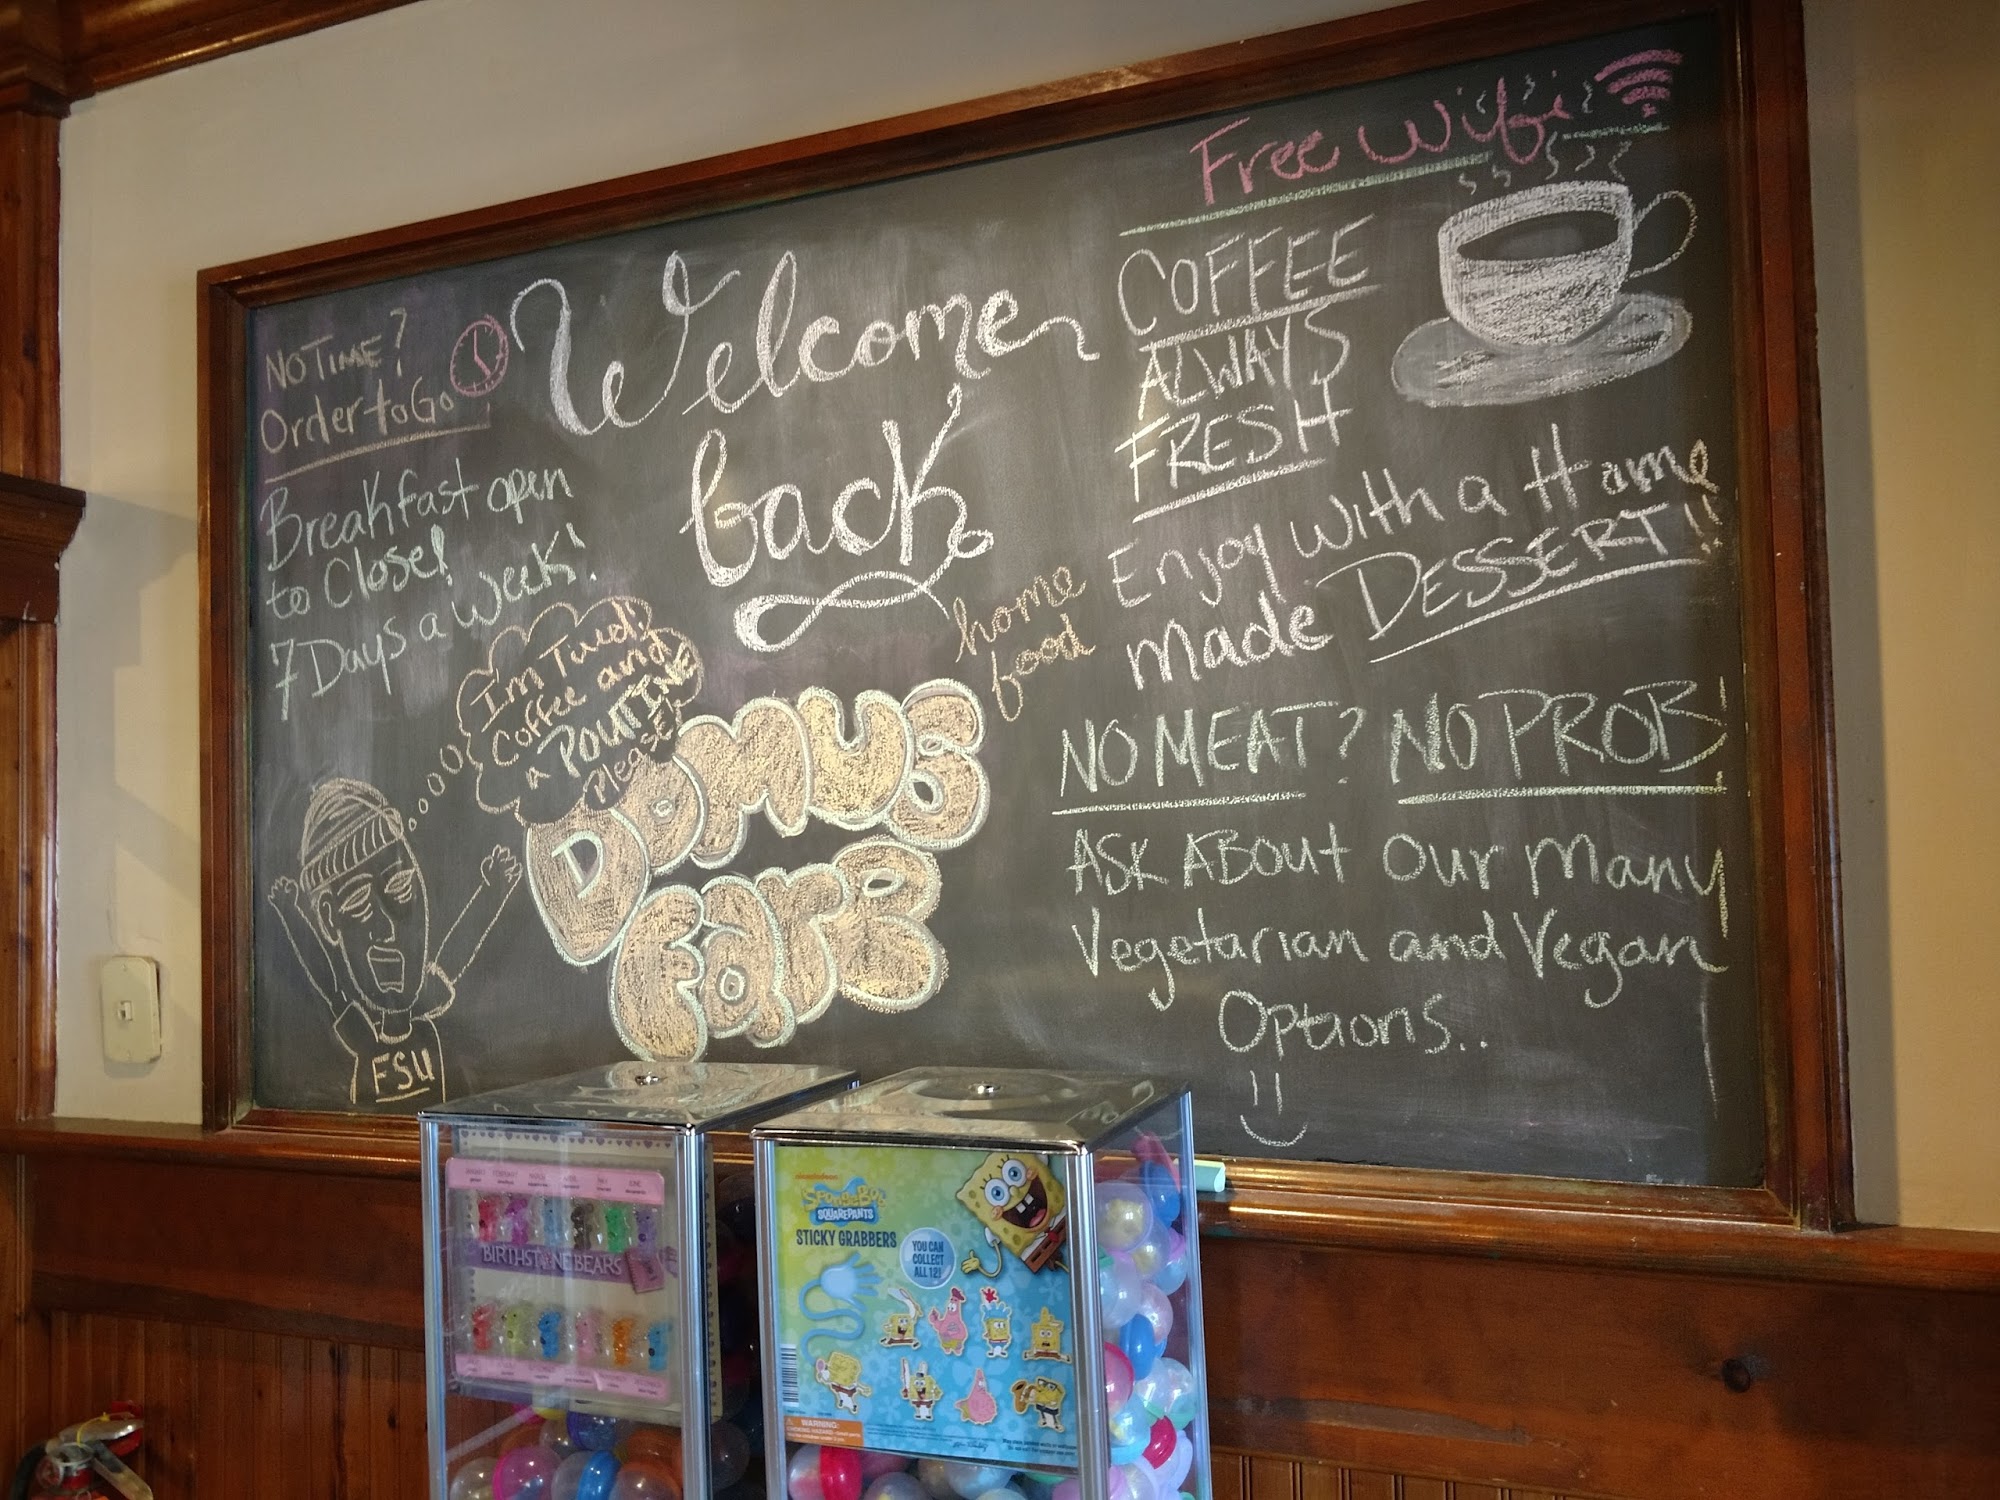 NO TIME?
Order to Go
Breakfast open
to Close!
7 Days a week!
I'm Tud:
Coffee and
a POUTINE
Please!
FSU
Welcome
back
home
food
DOMUS
FARE
Free Wifi
COFFEE
ALWAYS
FRESH
Enjoy with a Home
made DESSERT!!
NO MEAT? NO PROB!
ASK ABOUT our many
Vegetarian and Vegan
Options..
BIRTHSTONE BEARS
nickelodeon
SPONGEBOB
SQUAREPANTS
STICKY GRABBERS
YOU CAN
COLLECT
ALL 12!
WARNING: